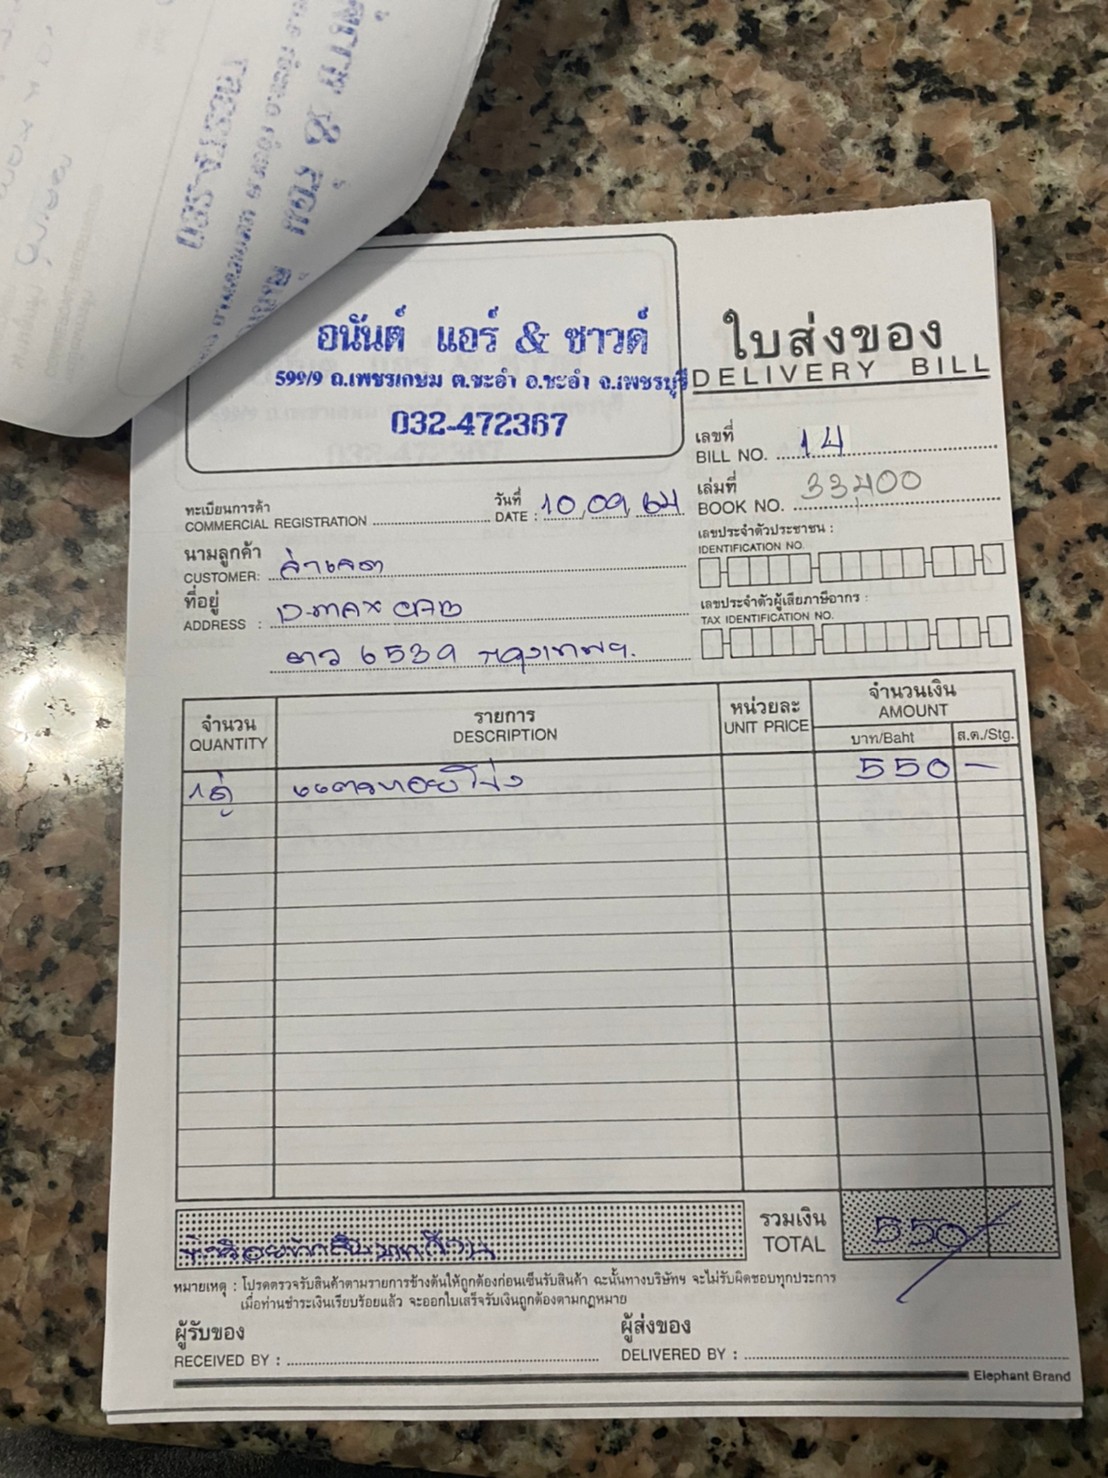 อนันต์ แอร์ & ซาวด์
599/9 ถ.เพชรเกษม ต.ชะอำ อ.ชะอำ จ.เพชรบุรี
032-472367
ใบส่งของ
DELIVERY BILL
เลขที่
BILL NO. 14
เล่มที่
BOOK NO. 33400
ทะเบียนการค้า
COMMERCIAL REGISTRATION
วันที่
DATE : 10,09,64
เลขประจำตัวประชาชน :
IDENTIFICATION NO.
นามลูกค้า
CUSTOMER:
ที่อยู่
ADDRESS : D-MAX CAB
6539 กรุงเทพฯ.
เลขประจำตัวผู้เสียภาษีอากร :
TAX IDENTIFICATION NO.
จำนวน
QUANTITY
รายการ
DESCRIPTION
หน่วยละ
UNIT PRICE
จำนวนเงิน
AMOUNT
บาท/Baht
ส.ต./Stg.
1คู่ แตรหอยโข่ง 550 -
ห้าร้อยห้าสิบบาทถ้วน
รวมเงิน
TOTAL
550 -
หมายเหตุ : โปรดตรวจรับสินค้าตามรายการข้างต้นให้ถูกต้องก่อนเซ็นรับสินค้า ฉะนั้นทางบริษัทฯ จะไม่รับผิดชอบทุกประการ
เมื่อท่านชำระเงินเรียบร้อยแล้ว จะออกใบเสร็จรับเงินถูกต้องตามกฎหมาย
ผู้รับของ
RECEIVED BY :
ผู้ส่งของ
DELIVERED BY :
Elephant Brand